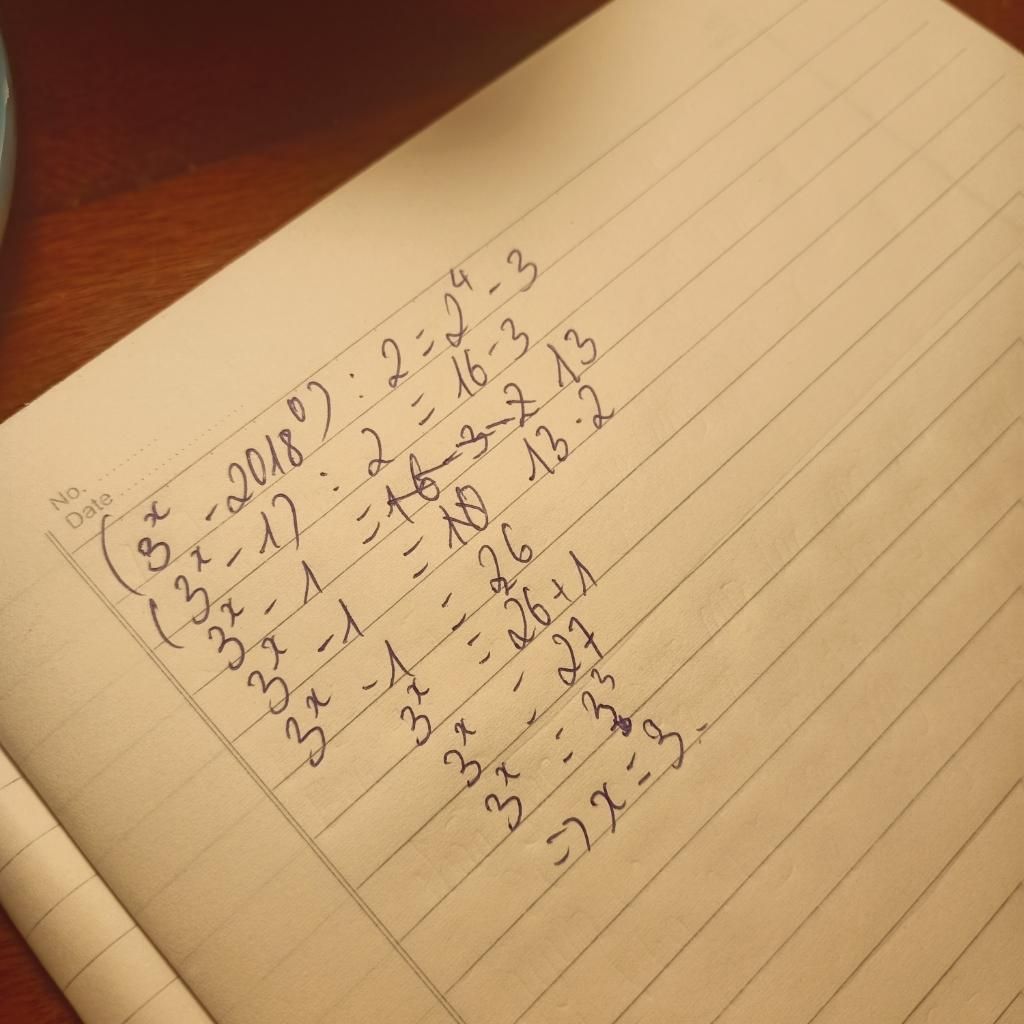 No.
Date
(3ˣ - 2018⁰) : 2 = 2⁴ - 3
(3ˣ - 1) : 2 = 16 - 3
3ˣ - 1 = 13
3ˣ - 1 = 13 . 2
3ˣ - 1 = 26
3ˣ = 26 + 1
3ˣ = 27
3ˣ = 3³
=> x = 3.